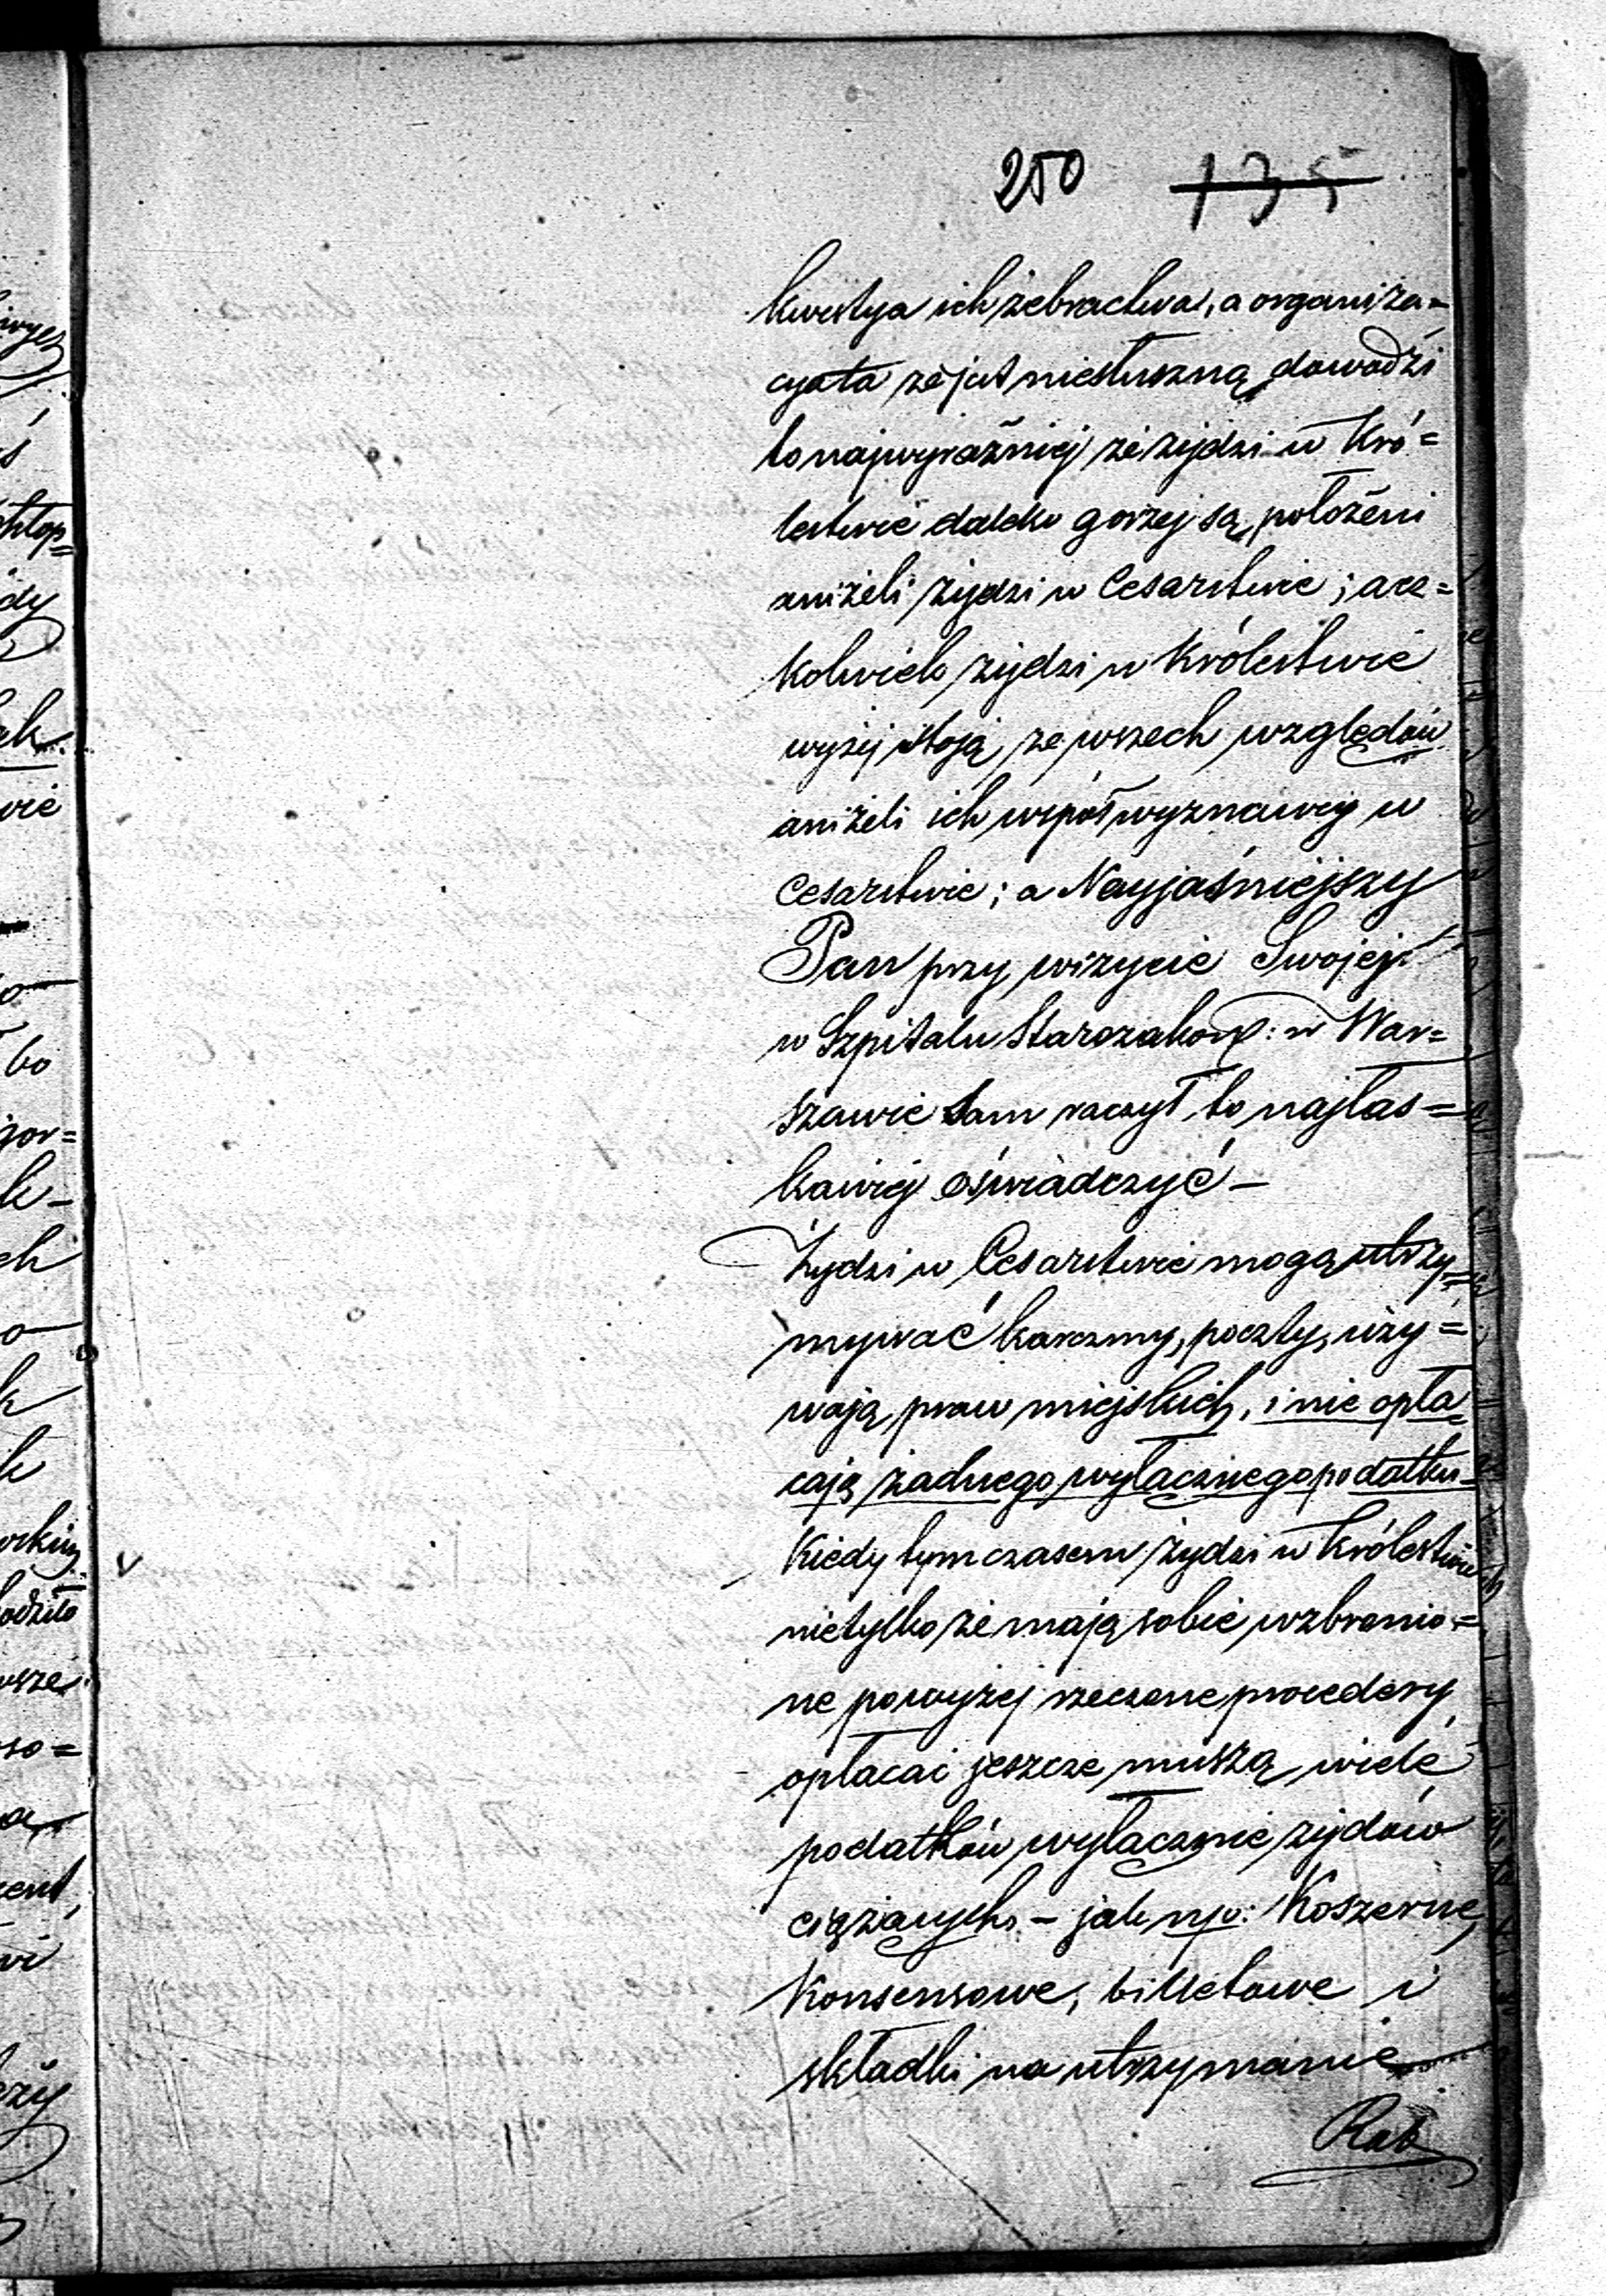 250 135
kwestya ich żebractwa, a organiza=
cya ta że jest niesłuszną dowodzi
to najwyraźniej że żydzi w Kró=
lestwie daleko gorzej są położeni
aniżeli żydzi w Cesarstwie; acz=
kolwiek żydzi w Królestwie
wyżej stoją ze wszech względów
aniżeli ich współwyznawcy w
Cesarstwie; a Nayjaśniejszy
Pan przy wizycie Swojej
w Szpitalu Starozakon: w War=
szawie Sam raczył to najłas=
kawiej oświadczyć –
Żydzi w Cesarstwie mogą utrzy=
mywać karczmy, poczty, uży=
wają praw miejskich, i nie opła=
cają żadnego wyłącznego podatku –
Kiedy tymczasem żydzi w Królestwie
nietylko że mają sobie wzbronio=
ne powyżej rzeczone procedery
opłacać jeszcze muszą wiele
podatków wyłącznie żydów
ciążących – jak np: Koszerne,
Konsensowe, billetowe i
składki na utrzymanie
Rab